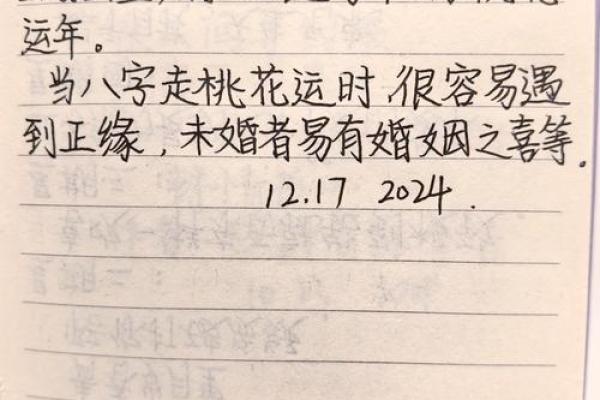 运年。
当八字走桃花运时,很容易遇
到正缘,未婚者易有婚姻之喜等。
12.17 2024.